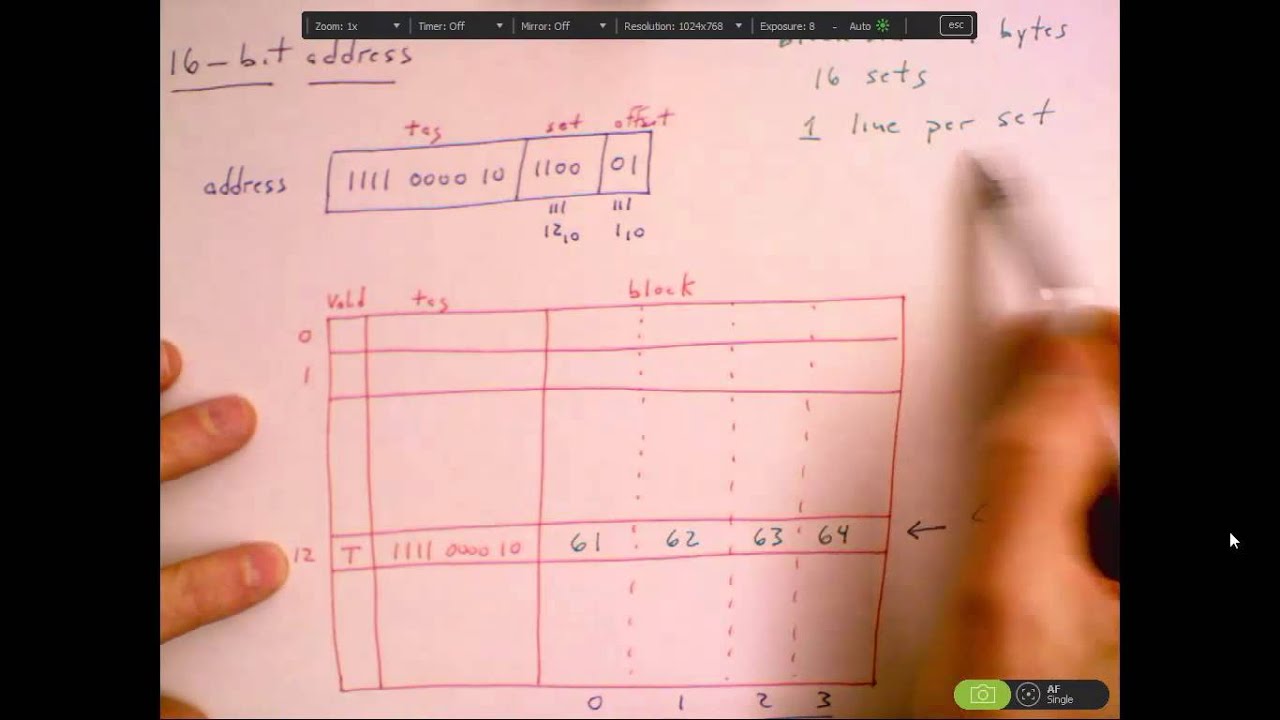 Zoom: 1x Timer: Off Mirror: Off Resolution: 1024x768 Exposure: 8 - Auto esc
bytes
16-bit address
16 sets
1 line per set
tag set offset
address 1111 0000 10 1100 01
12₁₀ 1₁₀
Valid tag block
0
1
12 T 1111 0000 10 61 62 63 64 ←
0 1 2 3
AF
Single